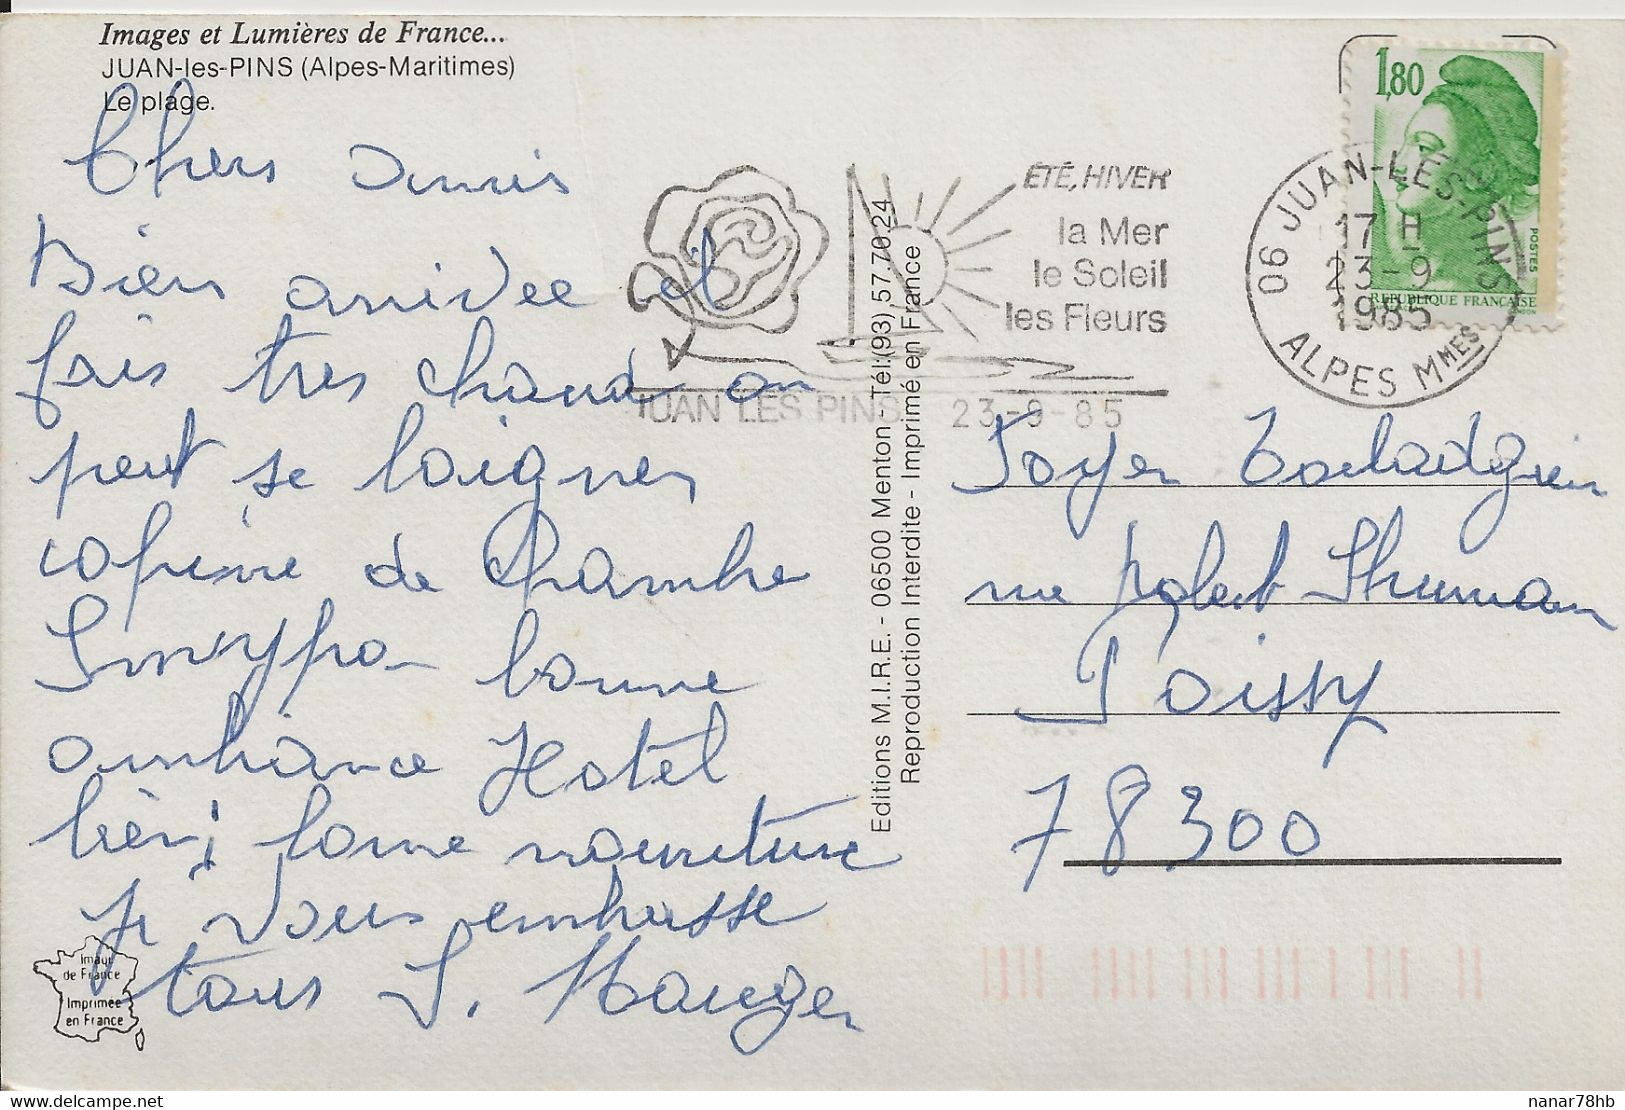 Images et Lumières de France...
JUAN-les-PINS (Alpes-Maritimes)
Le plage.
Chers Amis
Bien arrivée et
fais tres chaud on
peut se baigner
copine de Chambre
Sympa bonne
ambiance Hotel
bien bonne nourriture
je vous embrasse
tous S. Mauger
Imaur
de France
Imprimée
en France
Editions M.I.R.E. - 06500 Menton - Tél:(93) 57.70.24
Reproduction Interdite - Imprimé en France
ÉTÉ, HIVER
la Mer
le Soleil
les Fleurs
JUAN LES PINS 23-9-85
1,80
POSTES
REPUBLIQUE FRANÇAISE
06 JUAN-LES-PINS
17 H
23-9
1985
ALPES Mmes
Foyer
rue Robert Shuman
Poissy
78300
nanar78hb